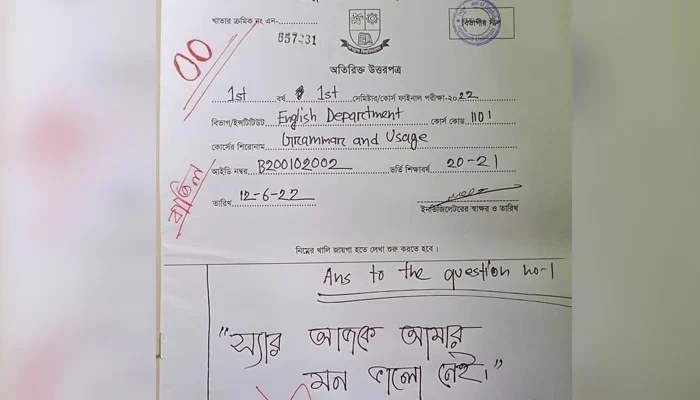 খাতার ক্রমিক নং এন-
657231
বিভাগীয় সিল
00
অতিরিক্ত উত্তরপত্র
1st বর্ষ 1st সেমিষ্টার/কোর্স ফাইনাল পরীক্ষা-২০22
বিভাগ/ইন্সটিটিউট English Department কোর্স কোড 1101
কোর্সের শিরোনাম Grammar and Usage
আইডি নম্বর B200102002 ভর্তি শিক্ষাবর্ষ 20-21
বাতিল
তারিখ 12-6-22
ইনভিজিলেটরের স্বাক্ষর ও তারিখ
নিম্নের খালি জায়গা হতে লেখা শুরু করতে হবে।
Ans to the question no-1
"স্যার আজকে আমার
মন ভালো নেই।"